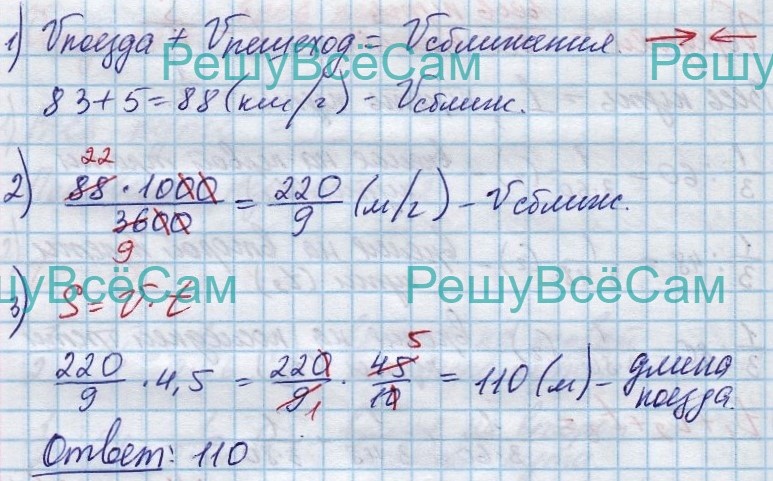 1) Vпоезда + Vпешеход = Vсближения. → ←
РешуВсёСам РешуВсёСам
83 + 5 = 88 (км/г) - Vсближ.
2) 88 22 · 1000 / 3600 9 = 220/9 (м/г) - Vсближ.
РешуВсёСам РешуВсёСам
3) S = V · t
220/9 · 4,5 = 220/9 1 · 45 5 / 10 = 110 (м) - длина поезда.
Ответ: 110